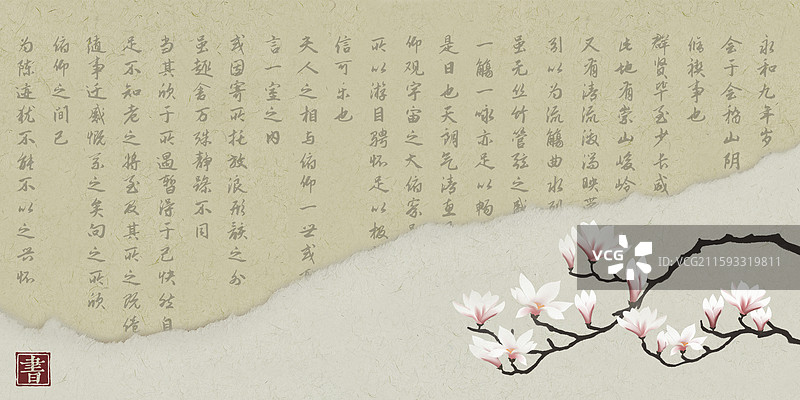 永和九年岁
会于会稽山阴
修禊事也
群贤毕至少长咸
此地有崇山峻岭
又有清流激湍映
引以为流觞曲水列
虽无丝竹管弦之盛
一觞一咏亦足以畅
是日也天朗气清惠
仰观宇宙之大俯察
所以游目骋怀足以极
信可乐也
夫人之相与俯仰一世或
言一室之内
或因寄所托放浪形骸之外
虽趣舍万殊静躁不同
当其欣于所遇暂得于己快然自
足不知老之将至及其所之既倦
随事迁感慨系之矣向之所欣
俯仰之间已
为陈迹犹不能不以之兴怀
書
VCG
ID:VCG211593319811